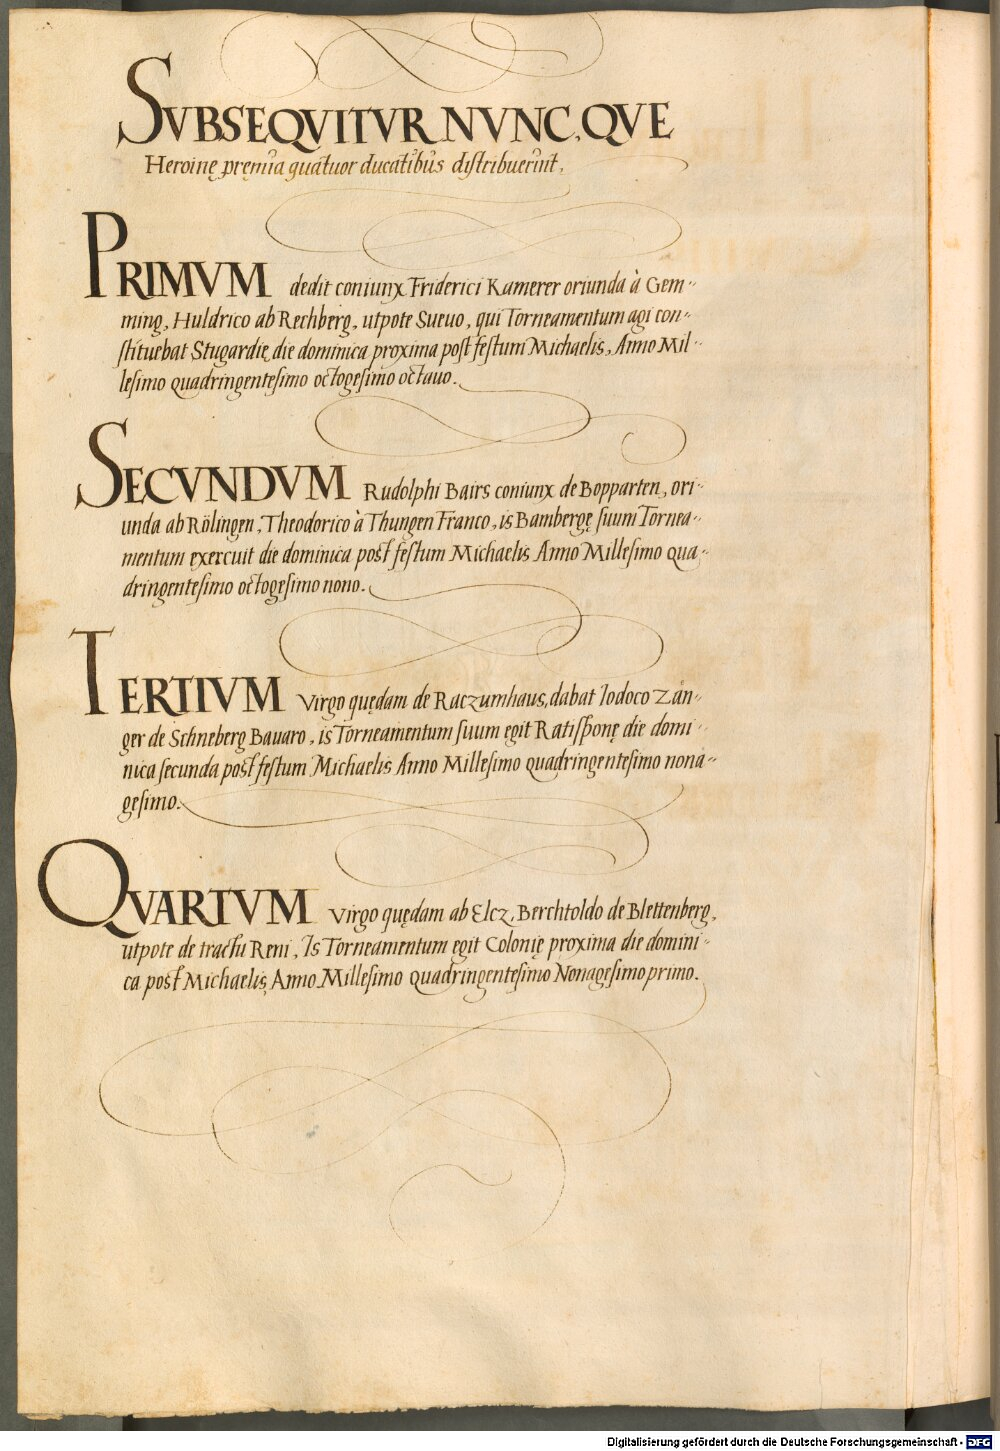 SVBSEQVITVR NVNC, QVE
Heroinę pręmia quatuor ducatibus distribuerunt.
PRIMVM dedit coniunx Friderici Kamerer oriunda à Gem-
ming, Huldrico ab Rechberg, utpote Sueuo, qui Torneamentum agi con-
stituebat Stugardię die dominica proxima post festum Michaelis, Anno Mil-
lesimo quadringentesimo octogesimo octauo.
SECVNDVM Rudolphi Bairs coniunx de Bopparten, ori-
unda ab Rölingen, Theodorico à Thungen Franco, is Bambergę suum Tornea-
mentum exercuit die dominica post festum Michaelis Anno Millesimo qua-
dringentesimo octogesimo nono.
TERTIVM Virgo quędam de Raczumhaus, dabat Iodoco Zån-
ger de Schneberg Bauaro, is Torneamentum suum egit Ratisponę die domi-
nica secunda post festum Michaelis Anno Millesimo quadringentesimo nona-
gesimo.
QVARTVM Virgo quędam ab Elcz, Berchtoldo de Blettenberg,
utpote de tractu Reni, Is Torneamentum egit Colonię proxima die domini-
ca post Michaelis, Anno Millesimo quadringentesimo Nonagesimo primo.
Digitalisierung gefördert durch die Deutsche Forschungsgemeinschaft - DFG